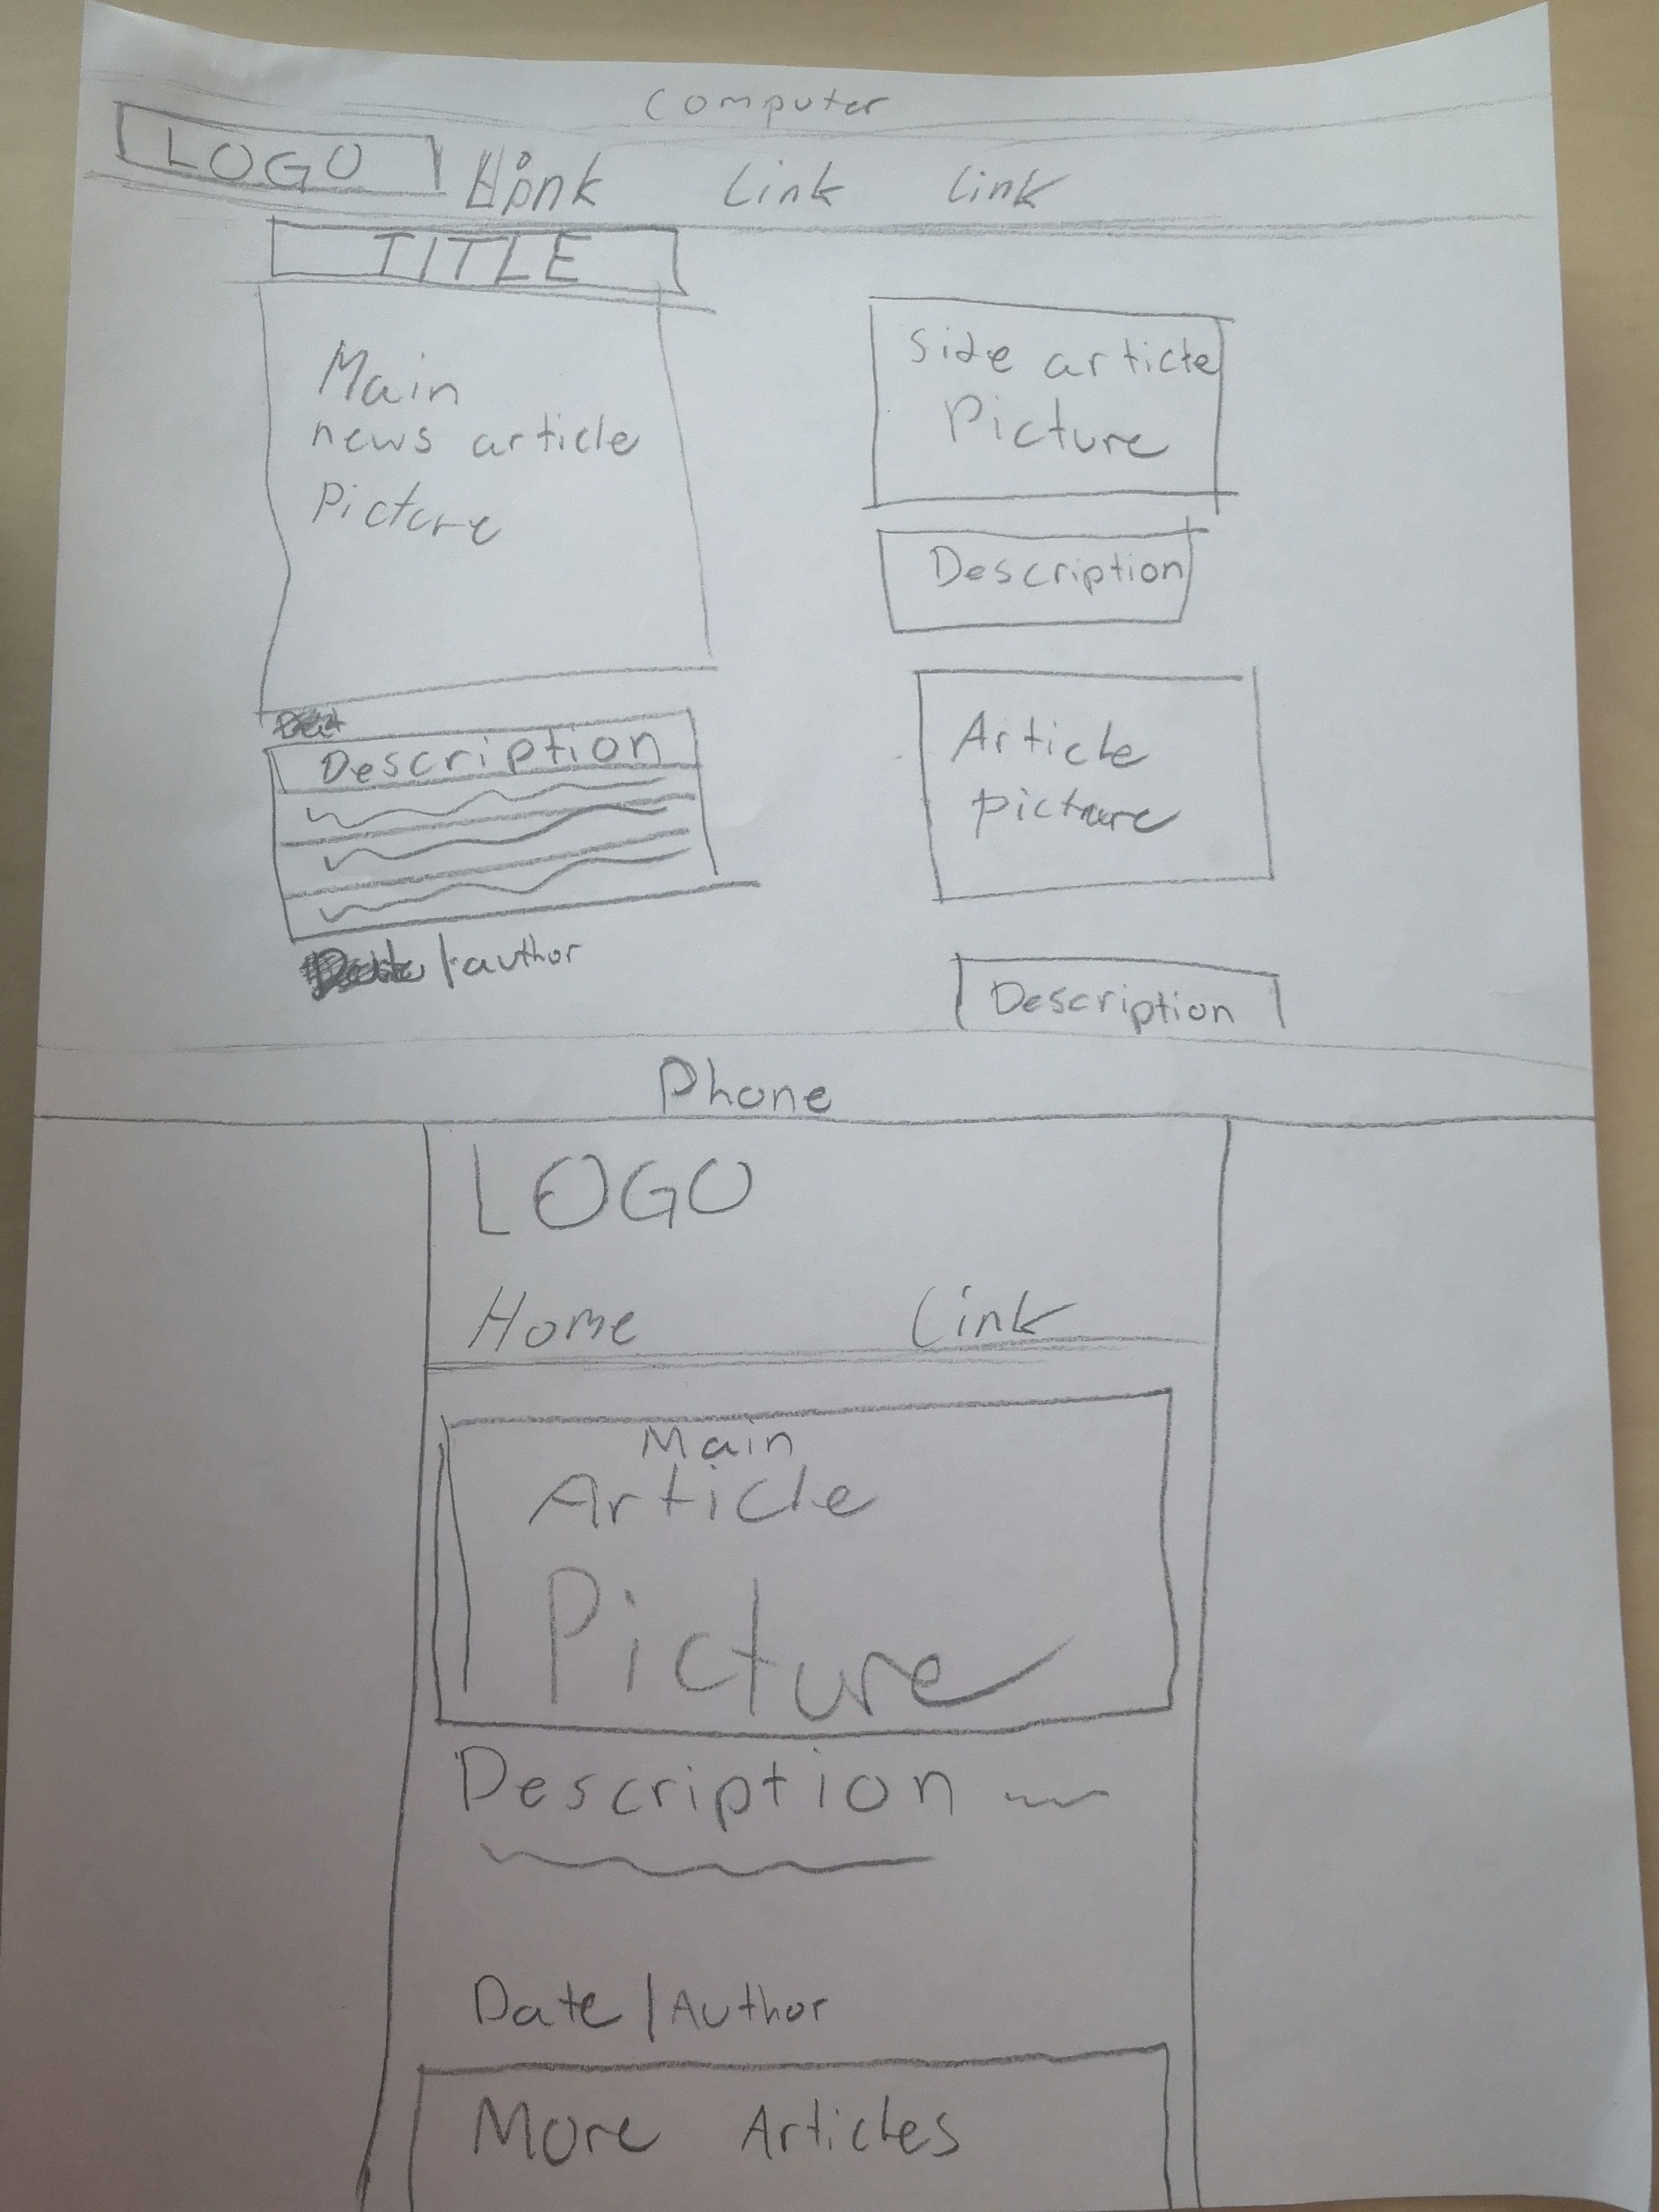 Computer
LOGO Link Link
TITLE
Main
news article
Picture
Side article
Picture
Description
Description
Article
picture
/author
Description
Phone
LOGO
Home Link
Main
Article
Picture
Description
Date / Author
More Articles